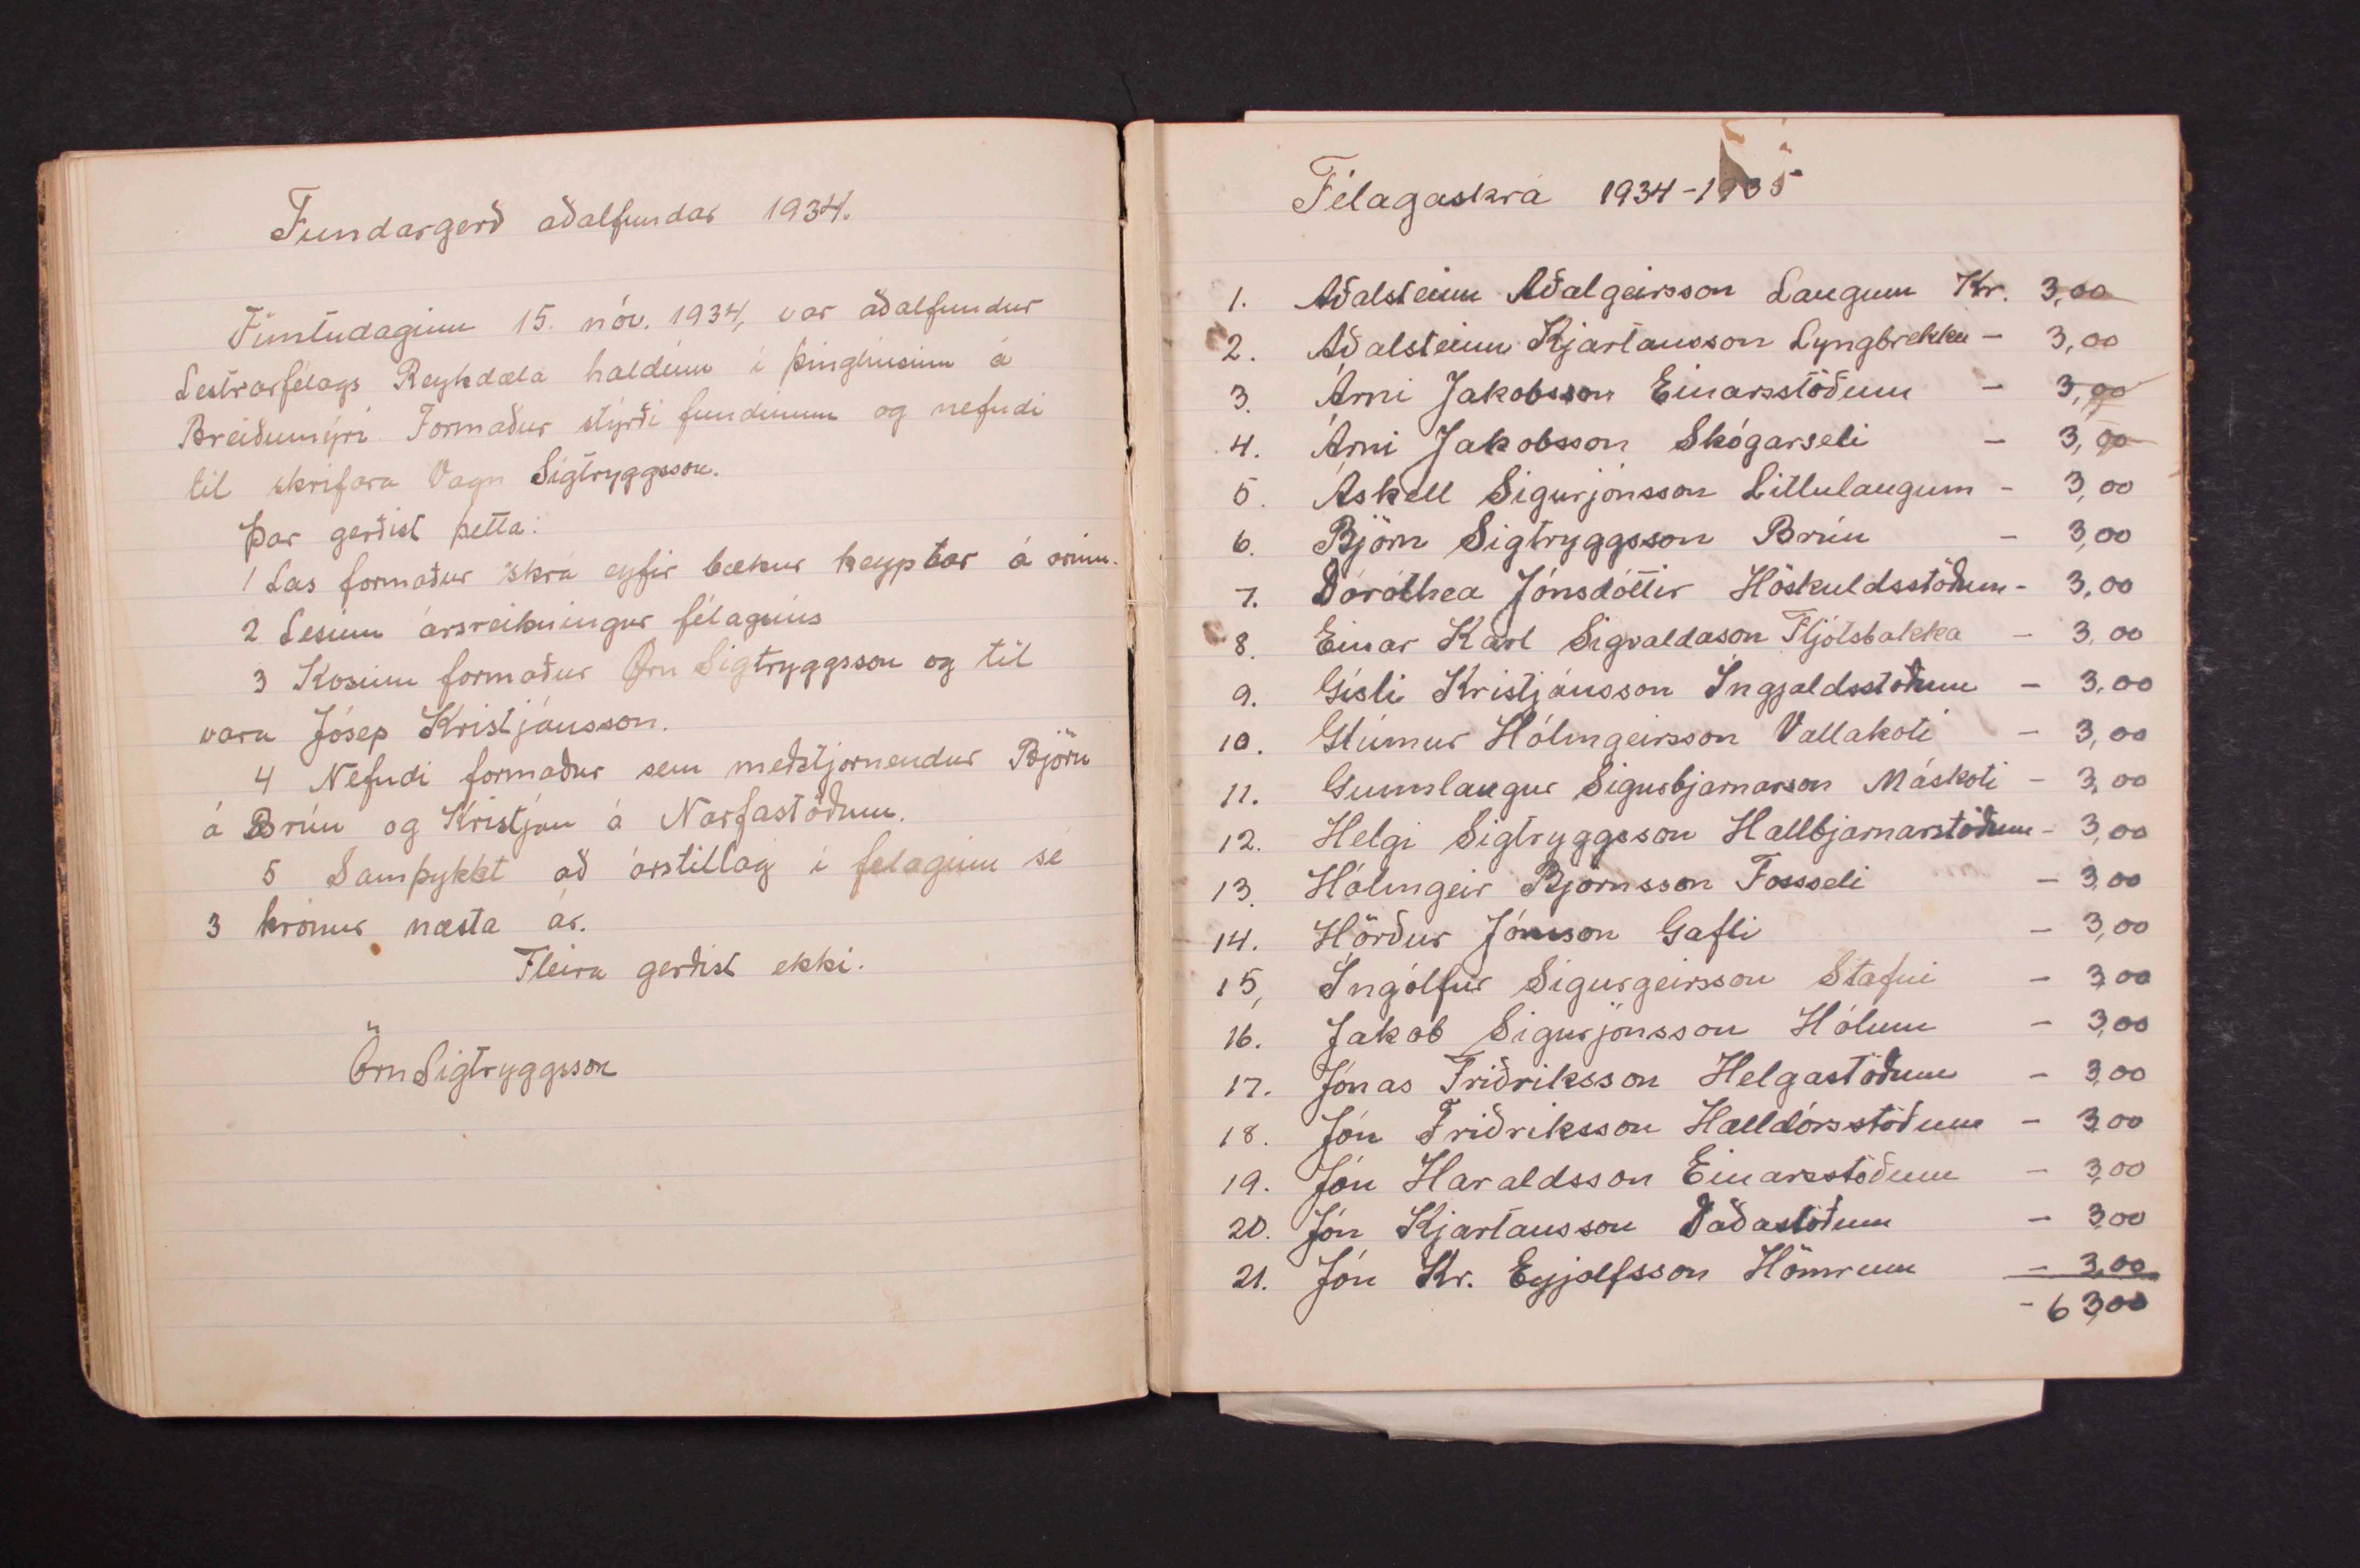 Fundargerð aðalfundar 1934.
Fimtudaginn 15. nóv. 1934, var aðalfundur
Lestrarfélags Reykdæla haldinn i þinghúsinu á
Breiðumýri Formaður stýrði fundinum og nefndi
til skrifara Vagn Sigtryggsson.
Þar gerðist þetta:
1 Las formaður skrá eyfir bækur keyptar á árinu.
2 Lesinn ársreikningur félagsins
3 Kosinn formaður Örn Sigtryggsson og til
vara Jósep Kristjánsson.
4 Nefndi formaður sem meðstjornendur Björn
á Brún og Kristján á Narfastöðum.
5 Samþykkt að árstillag i felaginu sé
3 krónur næsta ár.
Fleira gerðist ekki.
Örn Sigtryggsson
Félagaskrá 1934-1935
1. Aðalsteinn Aðalgeirsson Laugum Kr. 3,00
2. Aðalsteinn Kjartansson Lyngbrekku - 3,00
3. Árni Jakobsson Einarsstöðum - 3,00
4. Árni Jakobsson Skógarseli - 3,00
5. Áskell Sigurjónsson Litlulaugum - 3,00
6. Björn Sigtryggsson Brún - 3,00
7. Dórothea Jónsdóttir Höskuldsstöðum - 3,00
8. Einar Karl Sigvaldason Fljótsbakka - 3,00
9. Gísli Kristjánsson Ingjaldsstöðum - 3,00
10. Glúmur Hólmgeirsson Vallakoti - 3,00
11. Gunnlaugur Sigurbjarnarson Máskoti - 3,00
12. Helgi Sigtryggsson Hallbjarnarstöðum - 3,00
13. Hólmgeir Björnsson Fossseli - 3,00
14. Hörður Jónsson Gafli - 3,00
15, Ingólfur Sigurgeirsson Stafni - 3,00
16. Jakob Sigurjónsson Hólum - 3,00
17. Jónas Friðriksson Helgastöðum - 3,00
18. Jón Friðriksson Halldórsstöðum - 3,00
19. Jón Haraldsson Einarsstöðum - 3,00
20. Jón Kjartansson Daðastöðum - 3,00
21. Jón Kr. Eyjolfsson Hömrum - 3,00
- 63,00